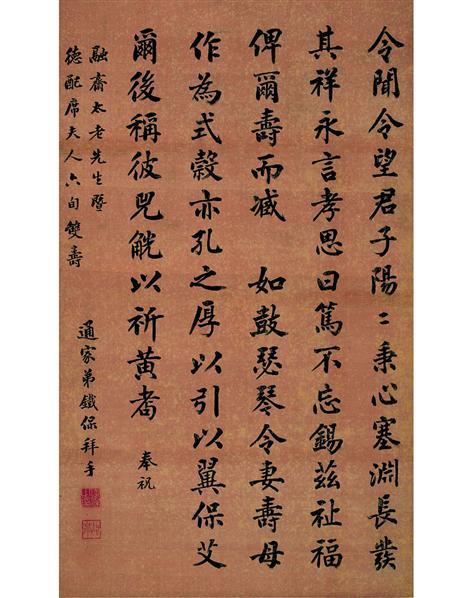 令聞令望君子陽〻秉心塞淵長發
其祥永言孝思曰篤不忘錫茲祉福
俾爾壽而臧 如鼓瑟琴令妻壽母
作為式穀亦孔之厚以引以翼保艾
爾後稱彼兕觥以祈黃耇 奉祝
融齋太老先生暨
德配席夫人六旬雙壽
通家弟鐵保拜手